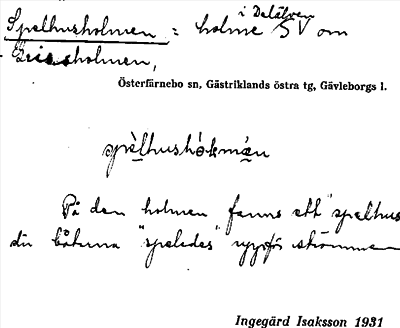 i Dalälven
Spelhusholmen = holme SV om
Grissholmen,
Österfärnebo sn, Gästriklands östra tg, Gävleborgs l.
spèlhushòlmàn
På den holmen fanns ett "spelhus
där båtarna "spelades" uppför strömmen
Ingegärd Isaksson 1931